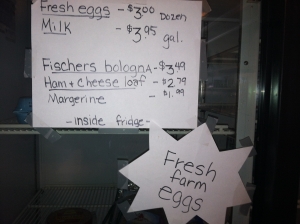 Fresh eggs - $3.00 Dozen
Milk - $3.95 gal.
Fischers bologna - $3.49
Ham + cheese loaf - $2.79
Margerine - $1.99
- inside fridge -
Fresh
farm
eggs